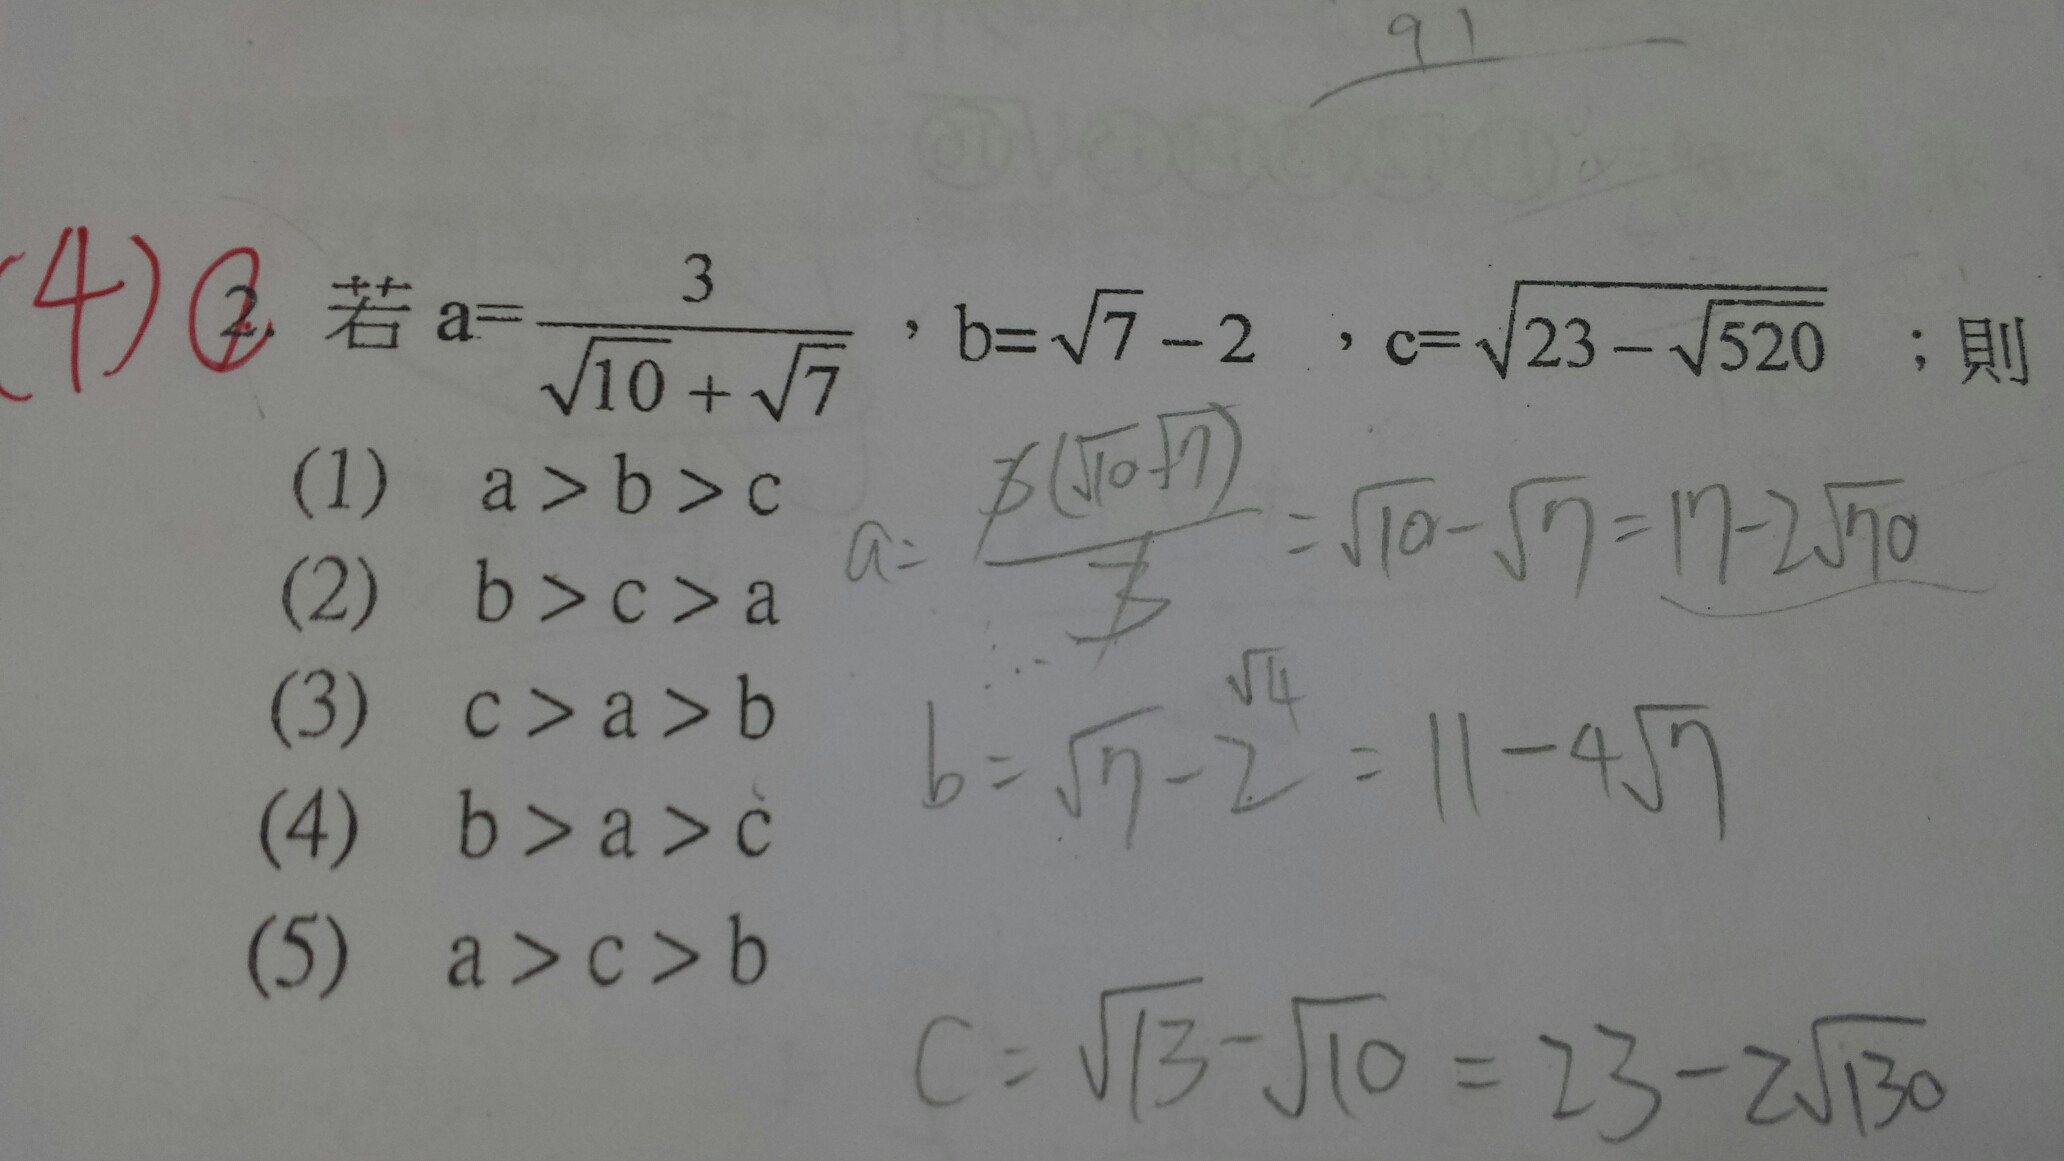 91
(4) 2. 若 a= \frac{3}{\sqrt{10} + \sqrt{7}} , b= \sqrt{7} - 2 , c= \sqrt{23 - \sqrt{520}} ;則
(1) a > b > c
(2) b > c > a
(3) c > a > b
(4) b > a > c
(5) a > c > b
a= \frac{3(\sqrt{10}-\sqrt{7})}{3} = \sqrt{10} - \sqrt{7} = 17-2\sqrt{70}
√4
b = \sqrt{7} - 2 = 11 - 4\sqrt{7}
C = \sqrt{13} - \sqrt{10} = 23 - 2\sqrt{130}